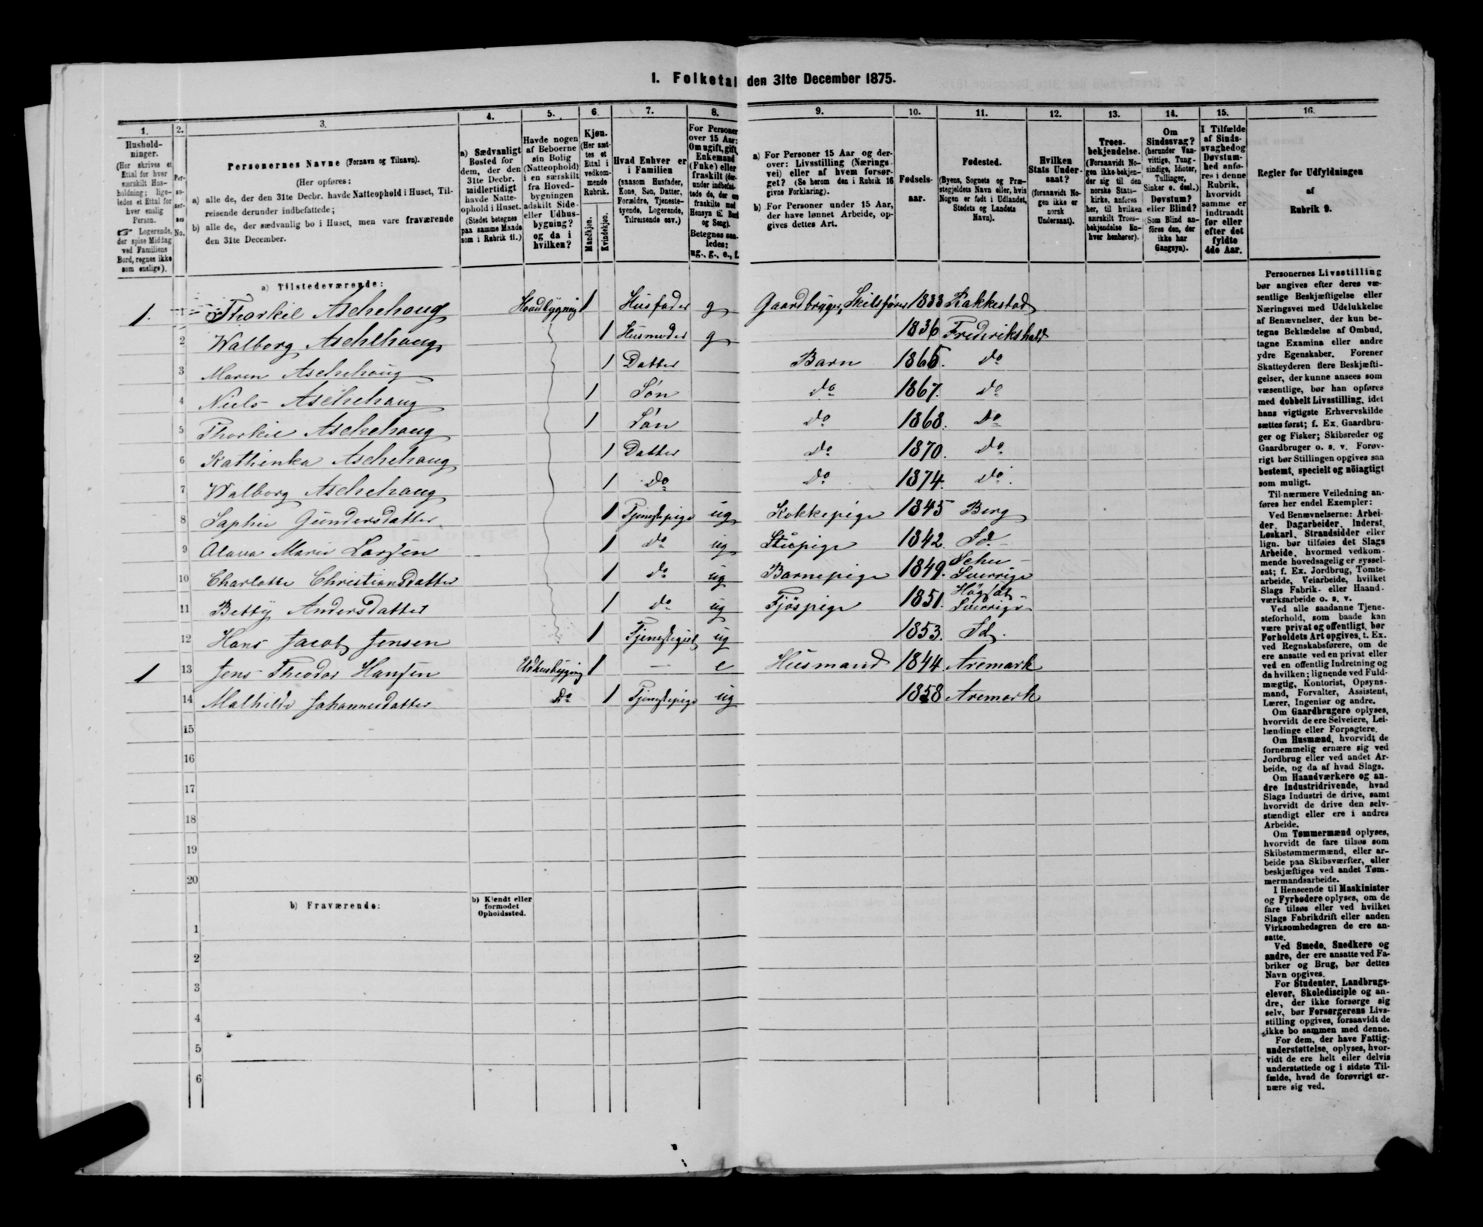 1. Folketal den 31te December 1875.
1. 2. 3. 4. 5. 6. 7. 8. 9. 10. 11. 12. 13. 14. 15. 16.
Personernes Navne (Fornavn og Tilnavn).
(Her opføres:
a) alle de, der den 31te Decbr. havde Natteophold i Huset, Til-
reisende derunder indbefattede;
b) alle de, der sædvanlig bo i Huset, men vare fraværende
den 31te December.
a) Sædvanligt
Bosted for
dem, der den
31te Decbr.
midlertidigt
havde Natte-
ophold i Huset.
(Stedet betegnes
paa samme Maade
som i Rubrik 11.)
Havde nogen
af Beboerne
sin Bolig
(Natteophold)
i en særskilt
fra Hoved-
bygningen
adskilt Side-
eller Udhus-
bygning?
og da i
hvilken?
Kjøn.
(Her sæt-
tes et
Ettal i
vedkom-
mende
Rubrik.
Mandkjøn.
Kvindekjøn.
Hvad Enhver er
i Familien
(saasom Husfader,
Kone, Søn, Datter,
Forældre, Tjeneste-
tyende, Logerende,
Tilreisende osv.)
a) For Personer 15 Aar og der-
over: Livsstilling (Nærings-
vei) eller af hvem forsør-
get? (Se herom den i Rubrik 16
givne Forklaring).
b) For Personer under 15 Aar,
der have lønnet Arbeide, op-
gives dettes Art.
Fødsels-
aar.
Fødested.
(Byens, Sognets og Præ-
stegjeldets Navn eller, hvis
Nogen er født i Udlandet,
Stedets og Landets
Navn).
Hvilken
Stats Under-
saat?
(forsaavidt No-
gen ikke er
norsk
Undersaat).
Troes-
bekjendelse.
(Forsaavidt No-
gen ikke bekjen-
der sig til den
norske Stats-
kirke, anføres
her, til hvilken
særskilt Troes-
bekjendelse En-
hver henhører).
Om
Sindssvag?
(herunder Van-
vittige, Tung-
sindige, Idioter,
Tullinger,
Sinker o. desl.)
Døvstum?
eller Blind?
(Som Blind an-
føres den, der
ikke har
Gangsyn).
I Tilfælde
af Sinds-
svaghed og
Døvstum-
hed anfø-
res i denne
Rubrik,
hvorvidt
samme er
indtraadt
før eller
efter det
fyldte
4de Aar.
Regler for Udfyldningen
af
Rubrik 9.
a) Tilstedeværende:
1. Thorkil Aschehoug Hovdbygning 1 Husfader g Gaardbruger, 1833 Rakkestad
2 Walborg Aschehoug 1 Husmoder g 1836 Frederikshald
3 Maren Aschehoug 1 Datter Barn 1865. do
4 Niels Aschehoug 1 Søn do 1867. do
5 Thorkil Aschehoug 1 Søn do 1868. do
6 Kathinka Aschehoug 1 Datter do 1870. do
7 Walborg Aschehoug 1 do do 1874. do
8 Saphie Gundersdatter 1 Tjenestepige ug Kokkepige 1845 Berg
9 Olava Marie Larsen 1 do ug Stuepige 1842 Id
10 Charlotte Christiansdatter 1 do ug Barnepige 1849. Sverrige
11 Betty Andersdatter 1 do ug Fjøspige 1851. Sverrige
12 Hans Jacob Jensen 1 ug 1853. Id.
1 13 Jens Theodor Hansen Udhusbygning 1 — e Husmand 1844 Aremark
14 Mathilde Johannesdatter Do 1 Tjenestepige ug 1858 Aremark
15
16
17
18
19
20
b) Fraværende:
b) Kjendt eller
formodet
Opholdssted.
1
2
3
4
5
6
Personernes Livsstilling
bør angives efter deres væ-
sentlige Beskjæftigelse eller
Næringsvei med Udelukkelse
af Benævnelser, der kun be-
tegne Beklædelse af Ombud,
tagne Examina eller andre
ydre Egenskaber. Forener
Skatteyderen flere Beskjæfti-
gelser, der kunne ansees som
væsentlige, bør han opføres
med dobbelt Livsstilling, idet
hans vigtigste Erhvervskilde
sættes først; f. Ex. Gaardbru-
ger og Fisker; Skibsreder og
Gaardbruger o. s. v. Forøv-
rigt bør Stillingen opgives saa
bestemt, specielt og nöiagtigt
som muligt.
Til nærmere Veiledning an-
føres her endel Exempler:
Ved Benævnelserne: Arbei-
der, Dagarbeider, Inderst,
Løskarl, Strandsidder eller
lign. bør tilføies det Slags
Arbeide, hvormed vedkom-
mende hovedsagelig er syssel-
sat; f. Ex. Jordbrug, Tomte-
arbeide, Veiarbeide, hvilket
Slags Fabrik- eller Haand-
værksarbeide o. s. v.
Ved alle saadanne Tjene-
steforhold, som baade kan
være privat og offentligt, bør
Forholdets Art opgives, t. Ex.
ved Regnskabsførere, om de
ere ansatte ved en privat eller
ved en offentlig Indretning og
da hvilken; lignende ved Fuld-
mægtig, Kontorist, Opsyns-
mand, Forvalter, Assistent,
Lærer, Ingeniør og andre.
Om Gaardbrugere oplyses,
hvorvidt de ere Selveiere, Lei-
lændinge eller Forpagtere.
Om Husmænd, hvorvidt de
fornemmelig ernære sig ved
Jordbrug eller ved andet Ar-
beide, og da af hvad Slags.
Om Haandværkere og an-
dre Industridrivende, hvad
Slags Industri de drive, samt
hvorvidt de drive den selv-
stændigt eller ere i andres
Arbeide.
Om Tømmermænd oplyses,
hvorvidt de fare tilsøs som
Skibstømmermænd, eller ar-
beide paa Skibsværfter, eller
beskjæftiges ved andet Tøm-
mermandsarbeide.
I Henseende til Maskinister
og Fyrbødere oplyses, om de
fare tilsøs eller ved hvilket
Slags Fabrikdrift eller anden
Virksomhedsgren de ere an-
satte.
Ved Smede, Snedkere og
andre, der ere ansatte ved Fa-
briker og Brug, bør dettes
Navn opgives.
For Studenter, Landbrugs-
elever, Skoledisciple og an-
dre, der ikke forsørge sig
selv, bør Forsørgerens Livs-
stilling opgives, forsaavidt de
ikke bo sammen med denne.
For dem, der have Fattig-
understøttelse, oplyses, hvor-
vidt de ere helt eller delvis
understøttede og i sidste Til-
fælde, hvad de forøvrigt er-
nære sig ved.